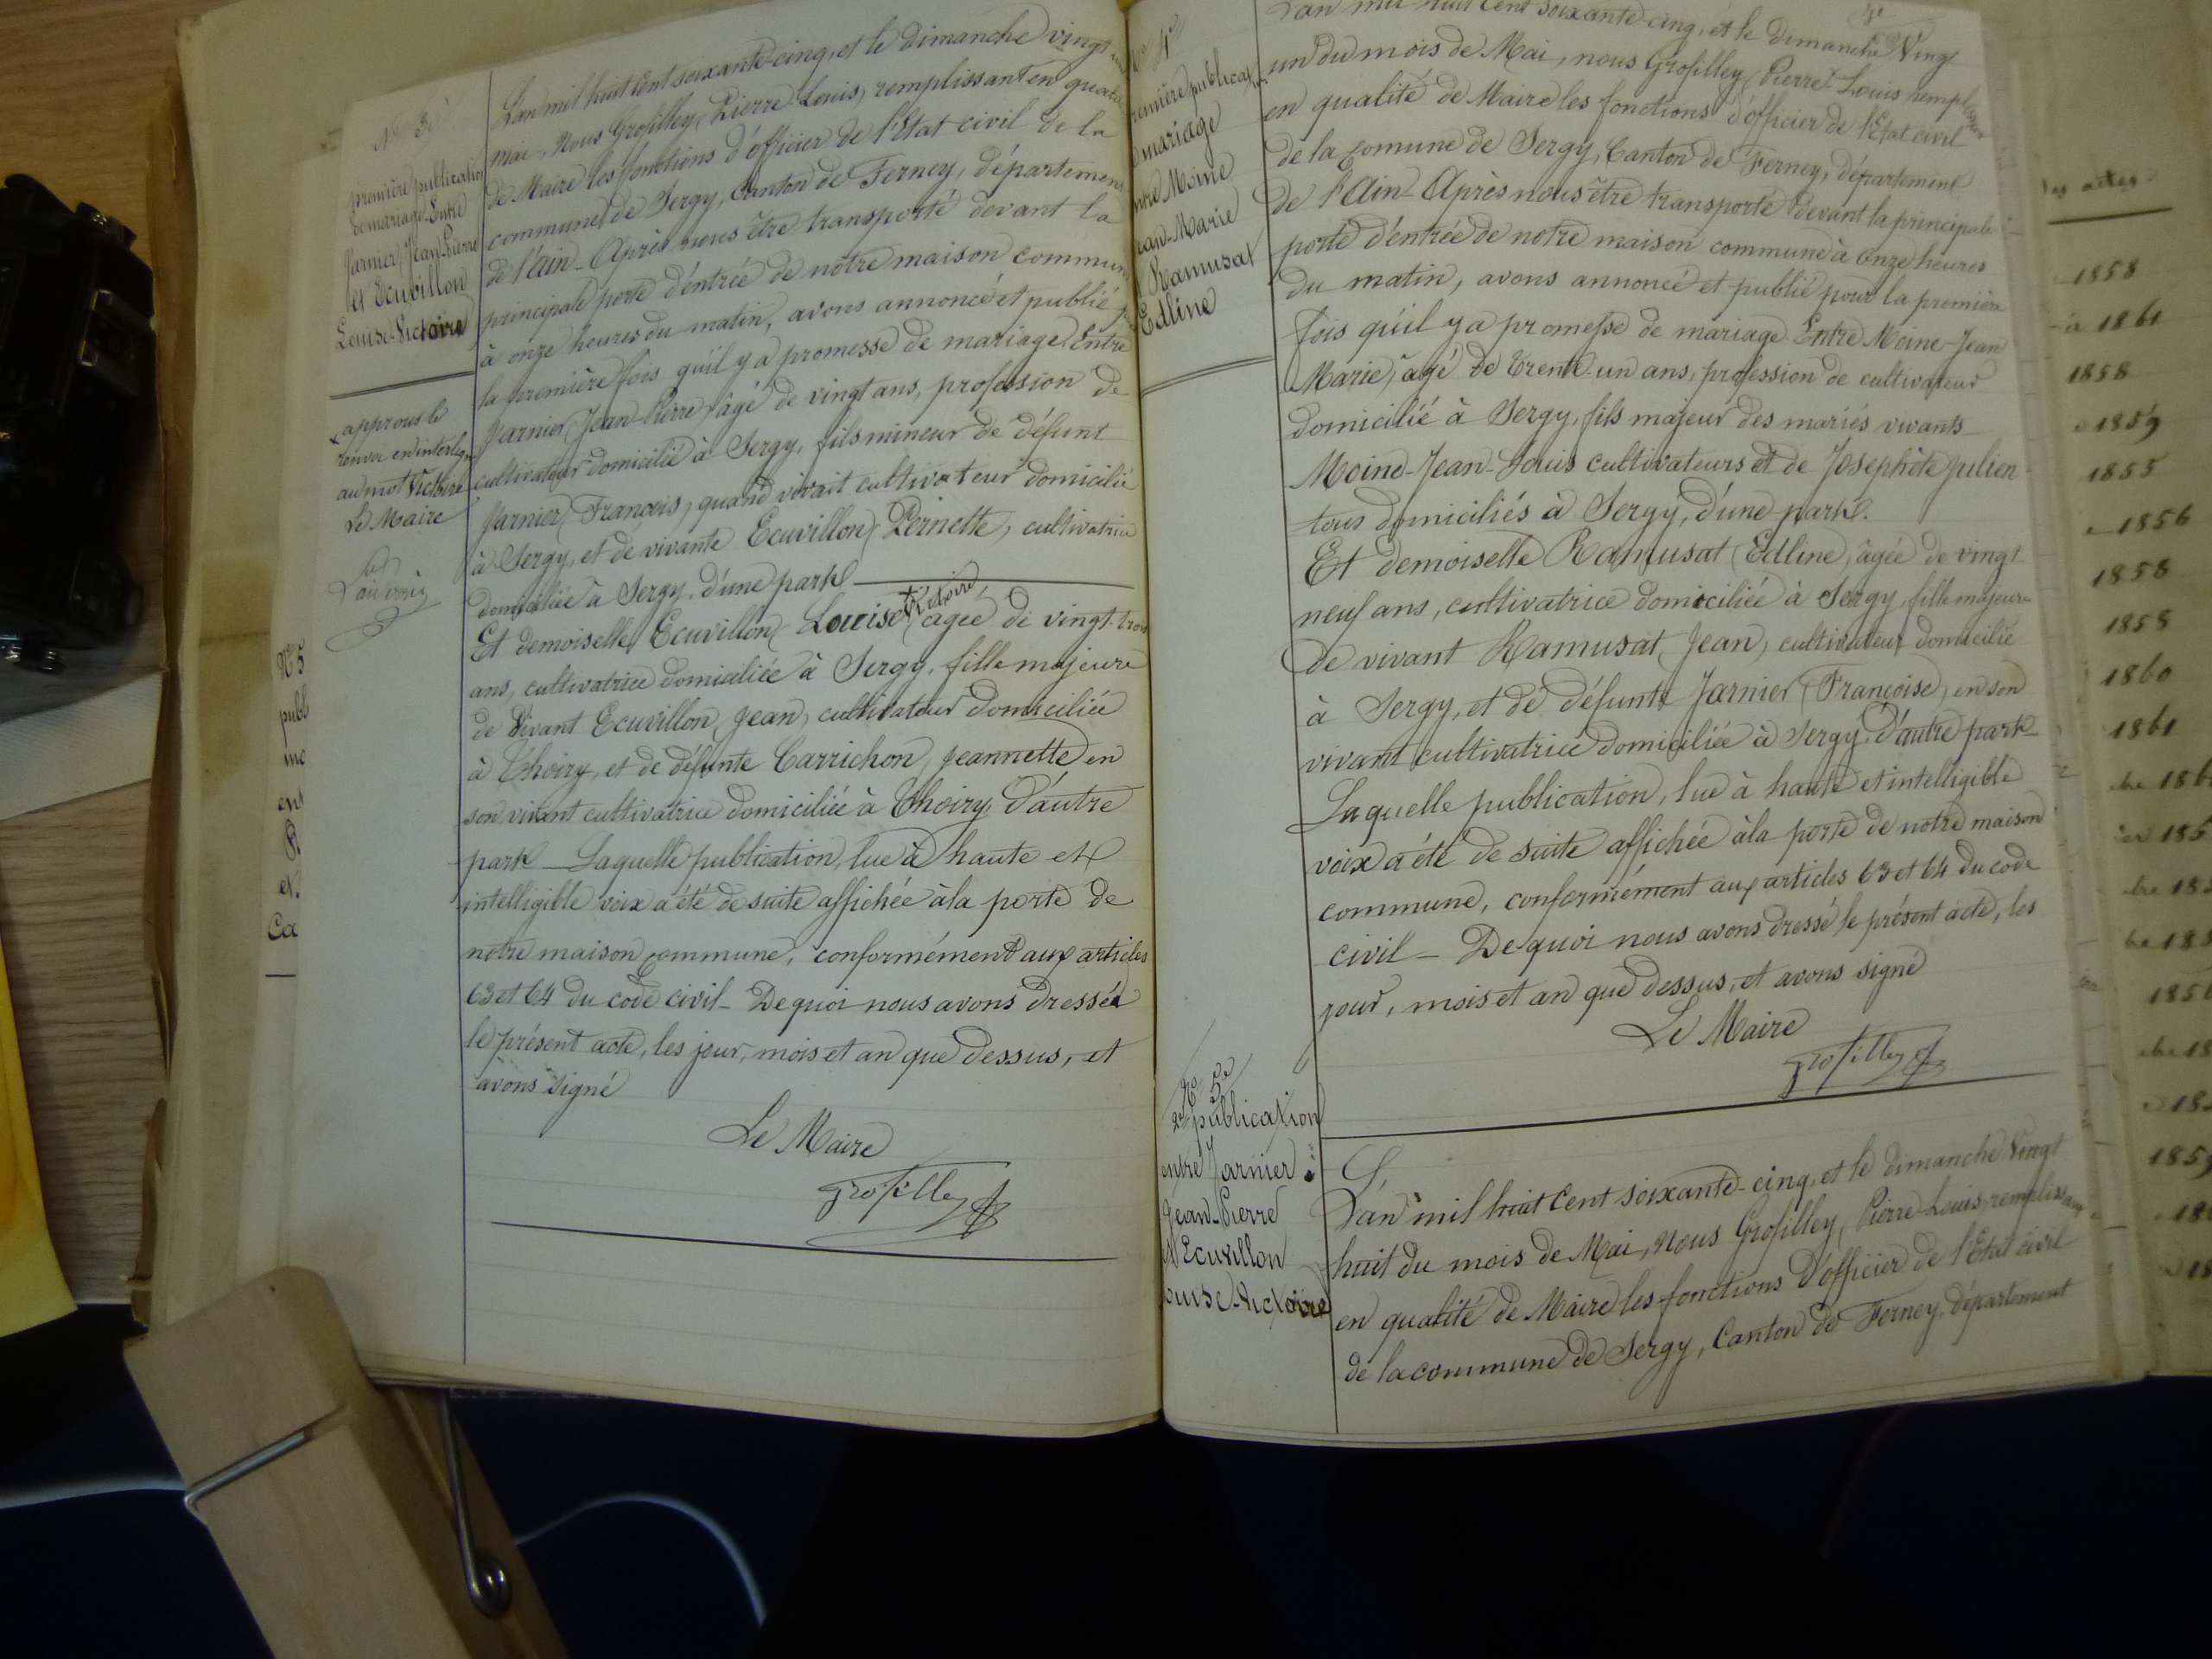 N° 3e
première publication
de mariage Entre
Jarnier Jean-Pierre
et Ecuvillon
Louise-Victoire
approuvé le
renvoi en interligne
au mot Victoire
Le Maire
L'an mil huit cent soixante-cinq, et le dimanche vingt un
mai, nous Grosfilley, Pierre-Louis, remplissant en qualité
de Maire les fonctions d'officier de l'Etat civil de la
commune de Sergy, Canton de Ferney, département
de l'Ain - Après nous être transporté devant la
principale porte d'entrée de notre maison commune
à onze heures du matin, avons annoncé et publié pr
la première fois qu'il y a promesse de mariage Entre
Jarnier (Jean-Pierre) âgé de vingt ans, profession de
cultivateur domicilié à Sergy, fils mineur de défunt
Jarnier (François) quand vivait cultivateur domicilié
à Sergy, et de vivante Ecuvillon (Pernette) cultivatrice
domiciliée à Sergy. d'une part
Et demoiselle Ecuvillon (Louise Victoire) agée de vingt-trois
ans, cultivatrice domiciliée à Sergy, fille majeure
de vivant Ecuvillon (Jean) cultivateur domiciliée
à Thoiry, et de défunte Carrichon (Jeannette) en
son vivant cultivatrice domiciliée à Thoiry, d'autre
part - Laquelle publication, lue à haute et
intelligible voix a été de suite affichée à la porte de
notre maison commune, conformément aux articles
63 et 64 du code civil - De quoi nous avons dressé
le présent acte, les jour, mois et an que dessus, et
avons signé
Le Maire
Grosfilley
N° 4e
première publication
mariage
entre Moine
Jean-Marie
Ramusat
Edline
L'an mil huit cent soixante-cinq, et le dimanche Vingt
un du mois de Mai, nous Grosfilley (Pierre-Louis) remplissant
en qualité de Maire les fonctions d'officier de l'Etat civil
de la commune de Sergy, Canton de Ferney, département
de l'Ain - Après nous être transporté devant la principale
porte d'entrée de notre maison commune à onze heures
du matin, avons annoncé et publié pour la première
fois qu'il y a promesse de mariage Entre Moine-Jean
Marie, âgé de trente-un ans, profession de cultivateur
domicilié à Sergy, fils majeur des mariés vivants
Moine-Jean-Louis cultivateurs et de Josephte Julien
tous domiciliés à Sergy, d'une part.
Et demoiselle Ramusat (Edline) âgée de vingt
neuf ans, cultivatrice domiciliée à Sergy fille majeure
de vivant Ramusat (Jean) cultivateur domicilié
à Sergy, et de défunte Jarnier (Françoise) en son
vivant cultivatrice domiciliée à Sergy, d'autre part
Laquelle publication, lue à haute et intelligible
voix a été de suite affichée à la porte de notre maison
commune, conformément aux articles 63 et 64 du code
civil - De quoi nous avons dressé le présent acte, les
jour, mois et an que dessus, et avons signé
Le Maire
Grosfilley
N° 5e
2e publication
entre Jarnier
Jean-Pierre
et Ecuvillon
Louise-Victoire
L'an mil huit cent soixante-cinq, et le dimanche Vingt
huit du mois de Mai, nous Grosfilley, Pierre-Louis remplissant
en qualité de Maire les fonctions d'officier de l'Etat civil
de la commune de Sergy, Canton de Ferney, département
N° 5
publ
en
et
Ca
actes
1858
1861
1858
1859
1855
1856
1858
1858
1860
1861